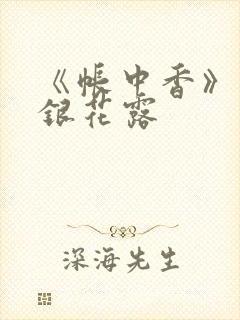 《帳中香》
銀花露
深海先生